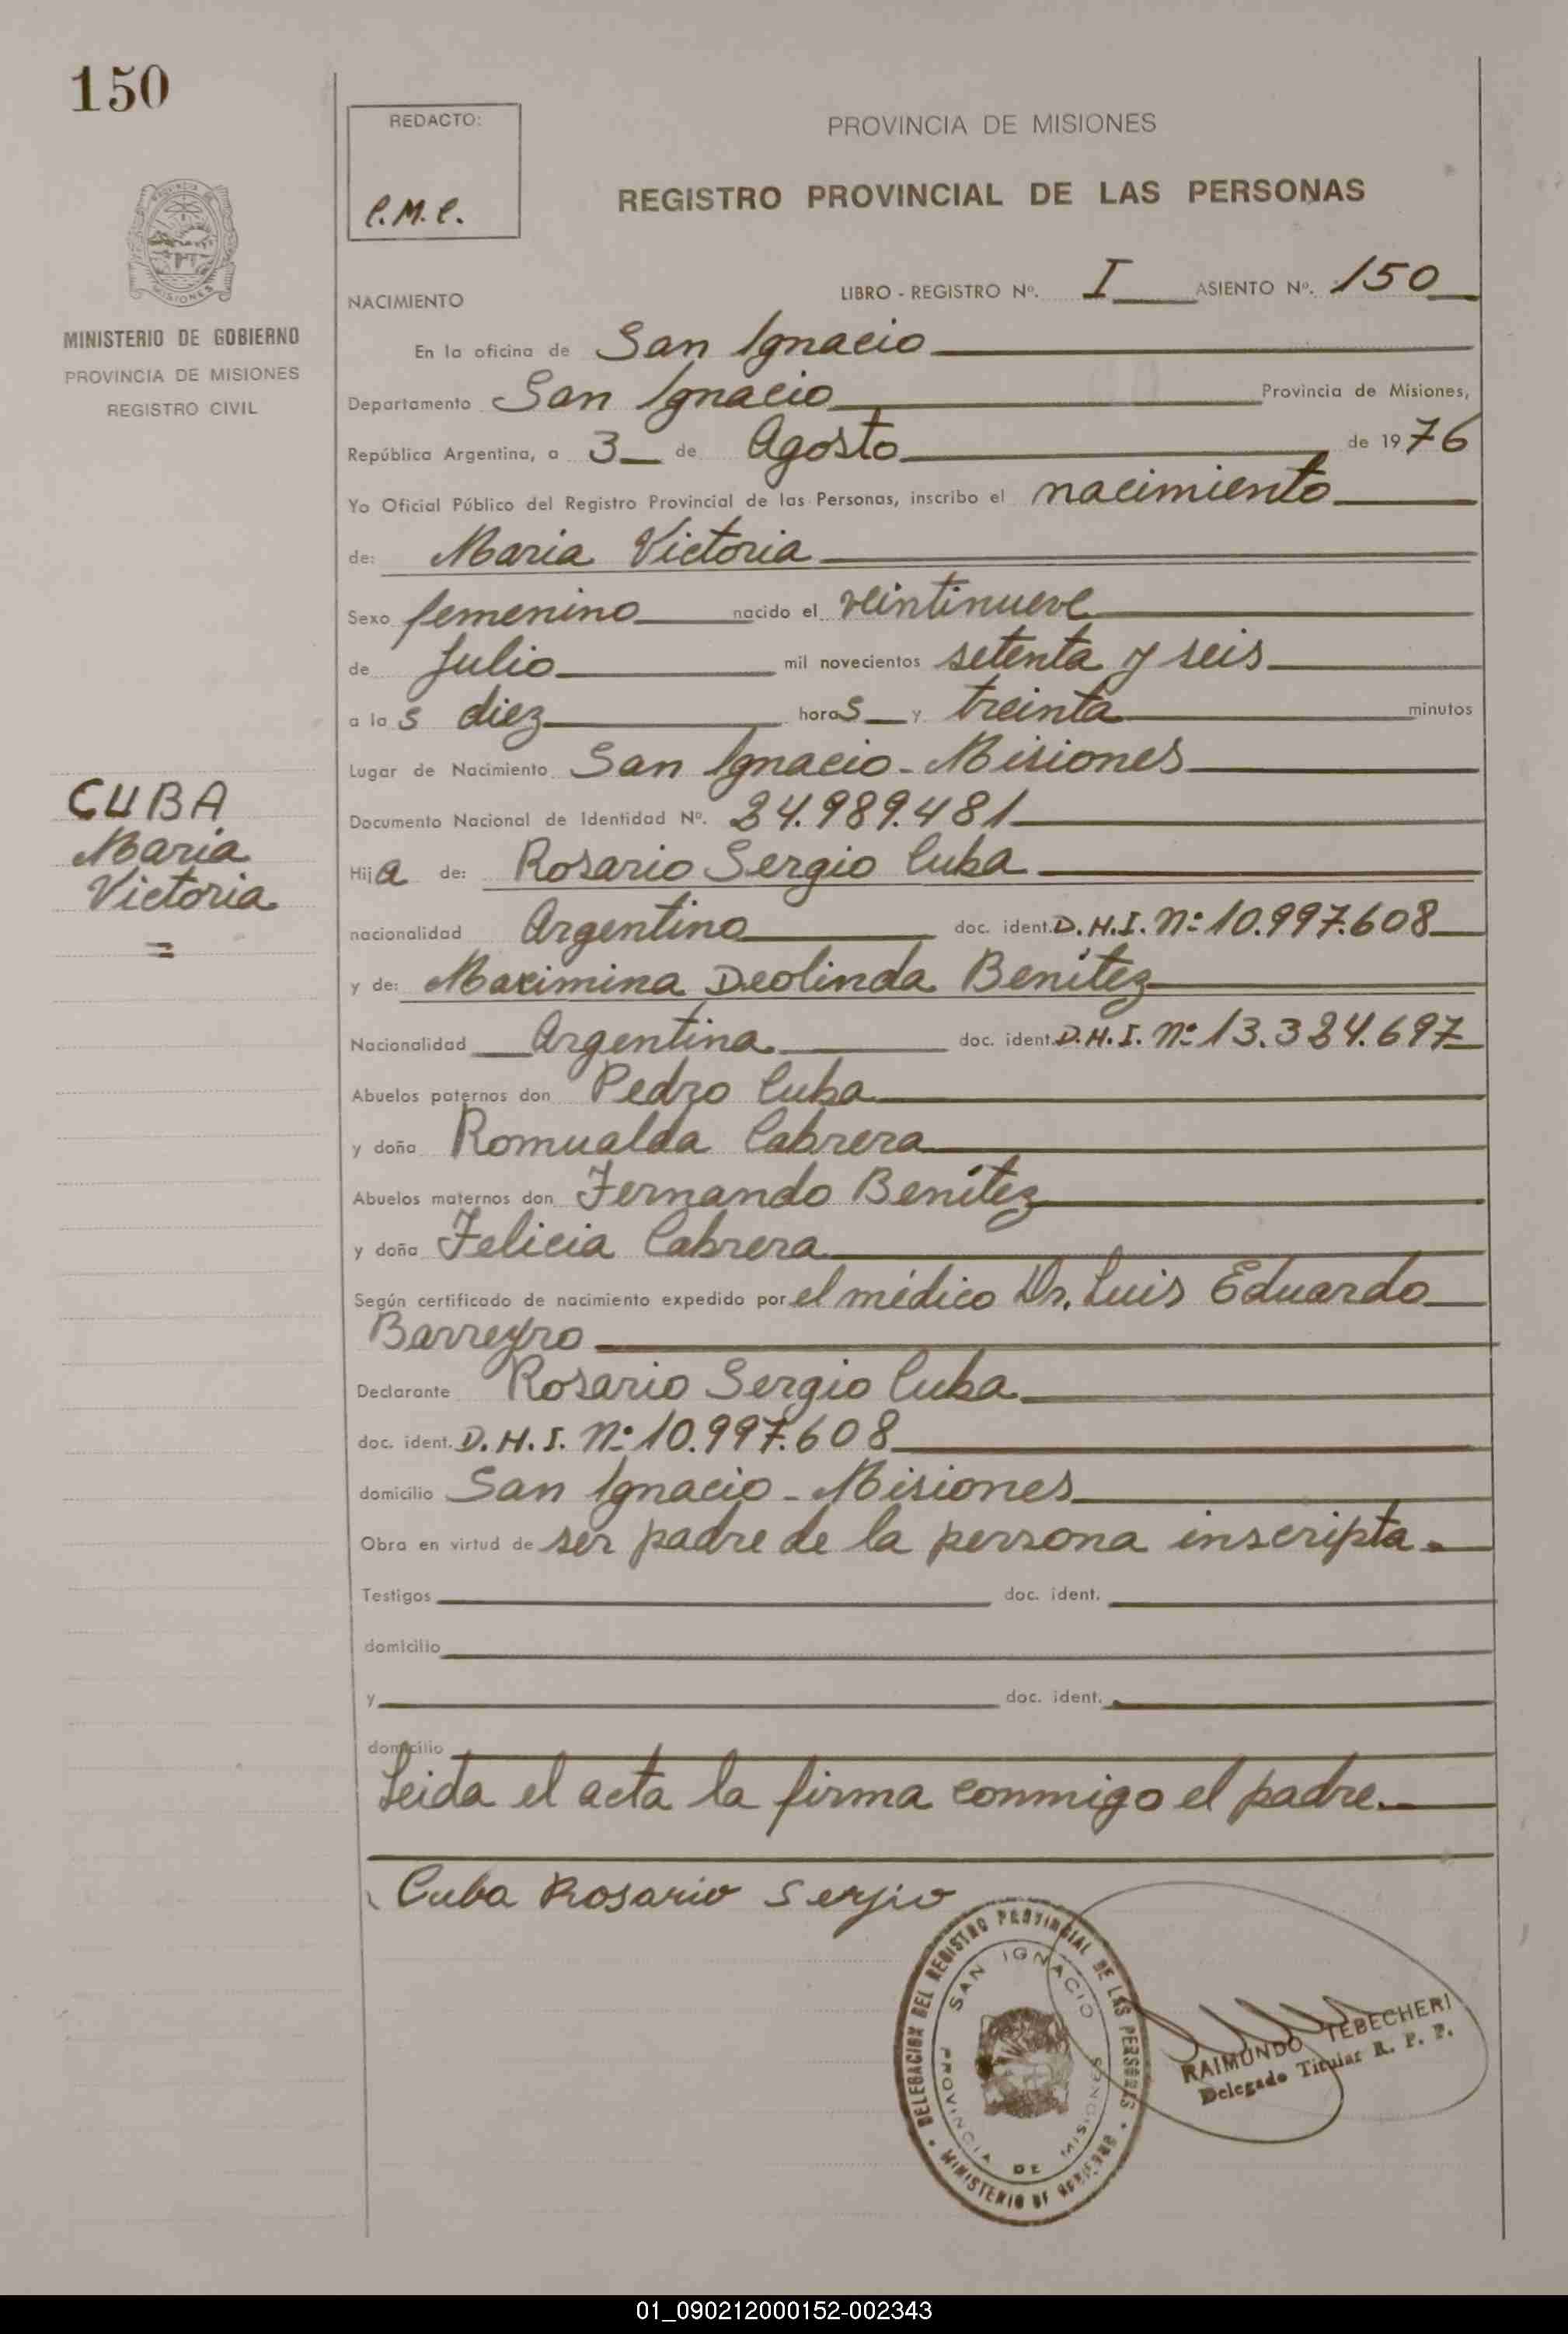 150
REDACTO:
C.M.C.
PROVINCIA DE MISIONES
REGISTRO PROVINCIAL DE LAS PERSONAS
MISIONES
MINISTERIO DE GOBIERNO
PROVINCIA DE MISIONES
REGISTRO CIVIL
CUBA
Maria
Victoria
NACIMIENTO LIBRO - REGISTRO Nº. I ASIENTO Nº. 150
En la oficina de San Ignacio
Departamento San Ignacio Provincia de Misiones,
República Argentina, a 3 de Agosto de 1976
Yo Oficial Público del Registro Provincial de las Personas, inscribo el nacimiento
de: Maria Victoria
Sexo femenino nacido el veintinueve
de Julio mil novecientos setenta y seis
a las diez horas y treinta minutos
Lugar de Nacimiento San Ignacio - Misiones
Documento Nacional de Identidad Nº. 24.989.481
Hija de: Rosario Sergio Cuba
nacionalidad Argentino doc. ident. D.N.I. Nº 10.997.608
y de: Maximina Deolinda Benítez
Nacionalidad Argentina doc. ident. D.N.I. Nº 13.324.697
Abuelos paternos don Pedro Cuba
y doña Romualda Cabrera
Abuelos maternos don Fernando Benítez
y doña Felicia Cabrera
Según certificado de nacimiento expedido por el médico Dr. Luis Eduardo
Barreyro
Declarante Rosario Sergio Cuba
doc. ident. D.N.I. Nº 10.997.608
domicilio San Ignacio - Misiones
Obra en virtud de ser padre de la persona inscripta.
Testigos doc. ident.
domicilio
y doc. ident.
domicilio
Leida el acta la firma conmigo el padre.
Cuba Rosario Sergio
DELEGACION DEL REGISTRO PROVINCIAL DE LAS PERSONAS
SAN IGNACIO
PROVINCIA DE MISIONES
MINISTERIO DE GOBIERNO
RAIMUNDO TEBECHERI
Delegado Titular R. P. P.
01_090212000152-002343